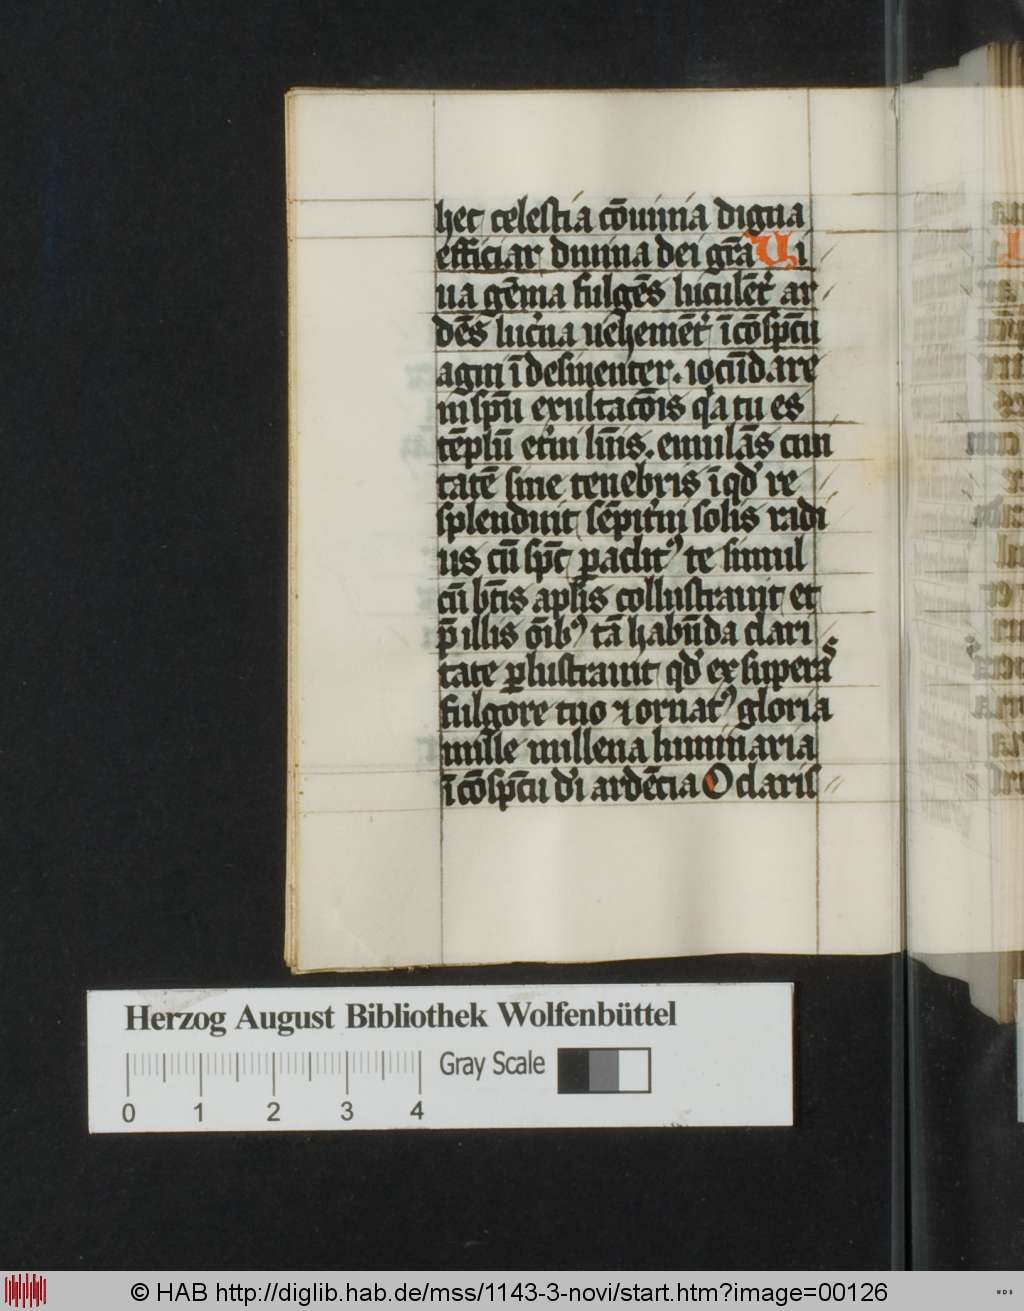 hec celestia cōuiuia digna
efficiar diuina dei grā Vi
ua gēma fulgēs luculēt' ar
dēs luc'na uehemēt' ī cōspcū
agni īdesinenter. iocūdare
ī spū exultacōis qa tu es
tēplū et'ni lūis. emulās ciui
tatē sine tenebris ī qd' re
splenduit sēpit'ni solis radi
us cū spc paclit9 te simul
cū btīs aplis collustrauit et
p̄ illis ōib9 tā habūda clari
tate plustrauit qd' ex superās
fulgore tuo ⁊ ornat9 gloria
mille millena luminaria
ī cōspcū di ardēcia O claris
Herzog August Bibliothek Wolfenbüttel
Gray Scale
0 1 2 3 4
© HAB http://diglib.hab.de/mss/1143-3-novi/start.htm?image=00126